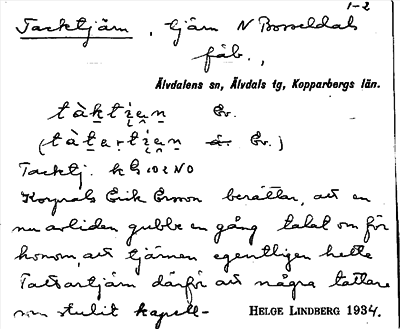 1-2
Tacktjärn, tjärn N Borreldals
fäb.,
Älvdalens sn, Älvdals tg, Kopparbergs län.
tàktian Ev.
(tàtartian Ev.)
Tacktj. k G 102 NO
Korprals Erik Ersson berättar, att en
nu avliden gubbe en gång talat om för
honom, att tjärnen egentligen hette
Tattartjärn därför att några tattare
som stulit kapell-
HELGE LINDBERG 1934.